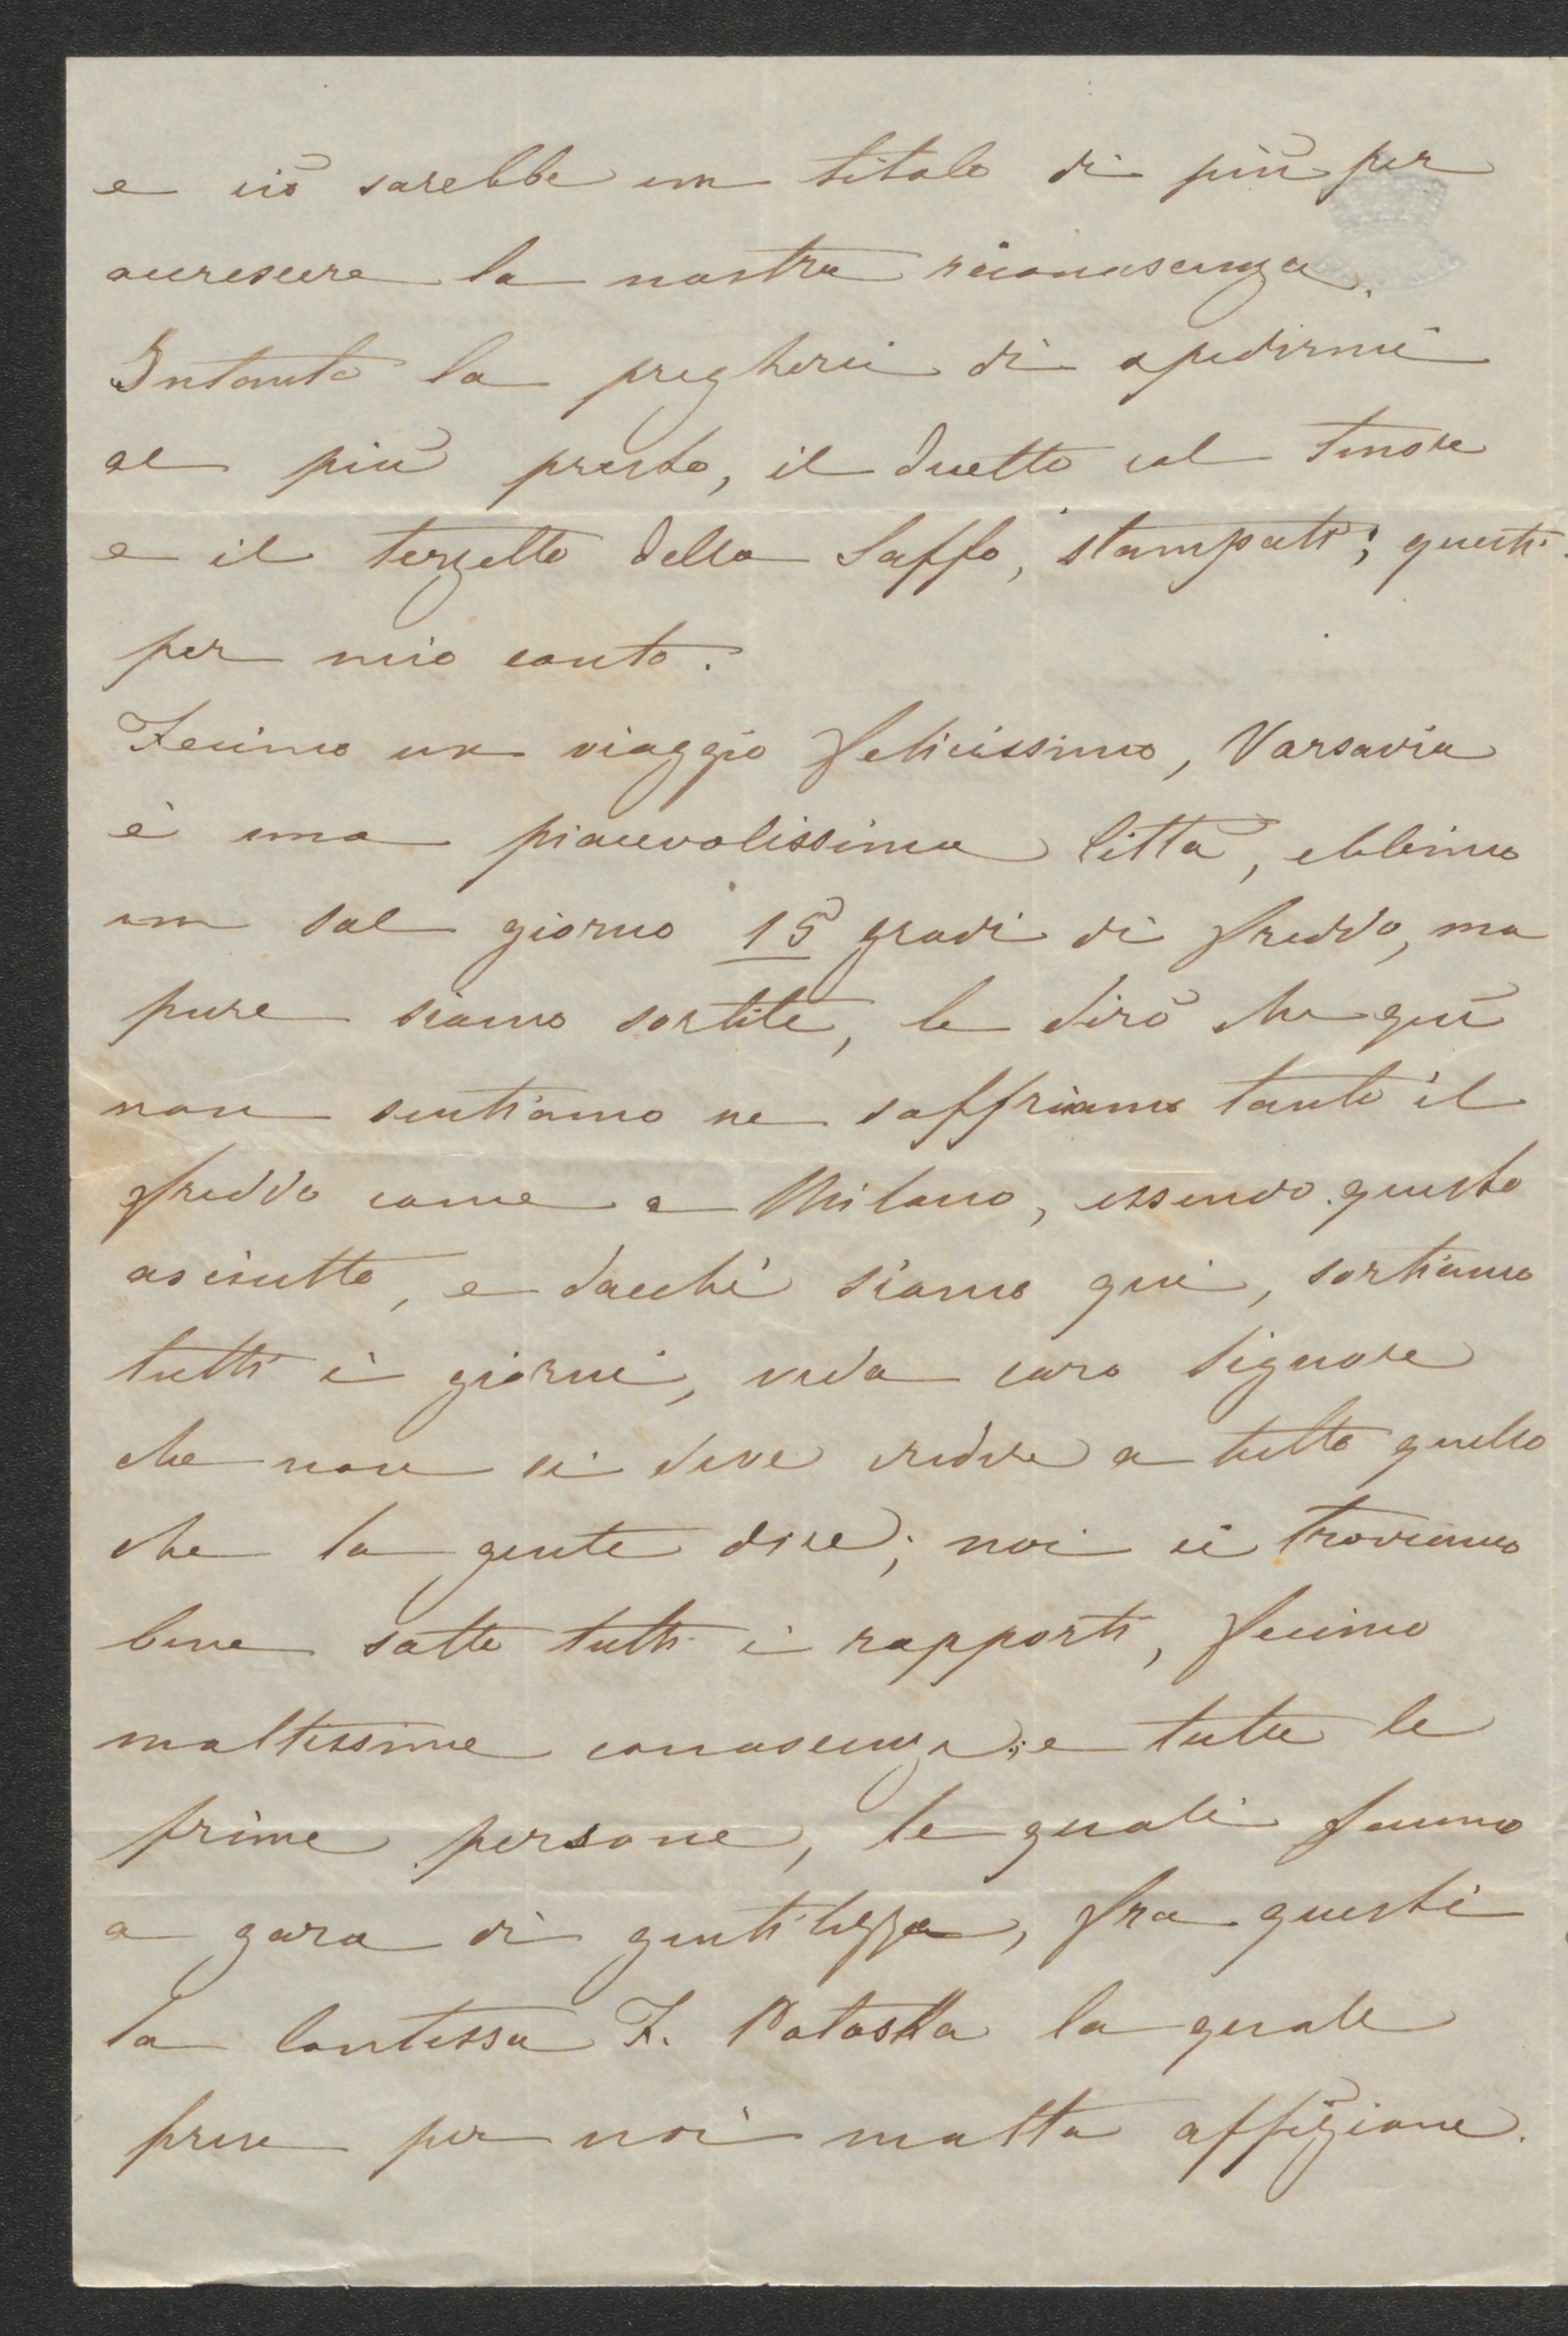 e ciò sarebbe un titolo di più per
accrescere la nostra riconoscenza.
Intanto la pregherei di spedirmi
al più presto, il duetto col Tenore
e il terzetto della Saffo, stampati; questi
per mio conto.
Fecimo un viaggio felicissimo, Varsavia
è una piacevolissima Città, ebbimo
un sol giorno 15 gradi di freddo, ma
pure siamo sortite, le dirò che quì
non sentiamo ne soffriamo tanto il
freddo come a Milano, essendo questo
asciutto, e dacchè siamo qui, sortiamo
tutti i giorni, veda caro Signore
che non si deve credere a tutto quello
che la gente dice; noi ci troviamo
bene sotto tutti i rapporti, fecimo
moltissime conoscenze; e tutte le
prime persone, le quali fanno
a gara di gentilezza, fra questi
la Contessa F. Potoska la quale
prese per noi molta affezione.